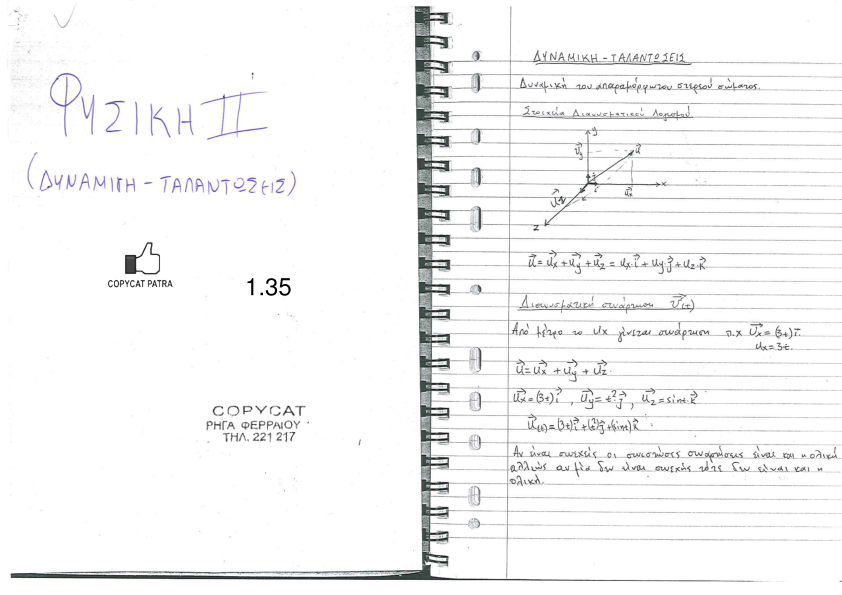 ΦΥΣΙΚΗ II
(ΔΥΝΑΜΙΚΗ - ΤΑΛΑΝΤΩΣΕΙΣ)
COPYCAT PATRA
1.35
COPYCAT
ΡΗΓΑ ΦΕΡΡΑΙΟΥ
ΤΗΛ. 221 217
ΔΥΝΑΜΙΚΗ - ΤΑΛΑΝΤΩΣΕΙΣ
Δυναμική του απαραμόρφωτου στερεού σώματος.
Στοιχεία Διανυσματικού Λογισμού
y
u⃗y
u⃗
x
u⃗x
u⃗z
z
u⃗ = u⃗x + u⃗y + u⃗z = ux·i⃗ + uy·j⃗ + uz·k⃗
Διανυσματική συνάρτηση υ⃗(t)
Από μέτρο το ux γίνεται συνάρτηση π.χ u⃗x = (3t)i⃗.
ux = 3t.
u⃗ = u⃗x + u⃗y + u⃗z.
u⃗x = (3t)i⃗ , u⃗y = t²·j⃗ , u⃗z = sint·k⃗
u⃗(t) = (3t)i⃗ + (t²)j⃗ + (sint)k⃗
Αν είναι συνεχείς οι συνιστώσες συναρτήσεις είναι και η ολική
αλλιώς αν μία δεν είναι συνεχής τότε δεν είναι και η
ολική.